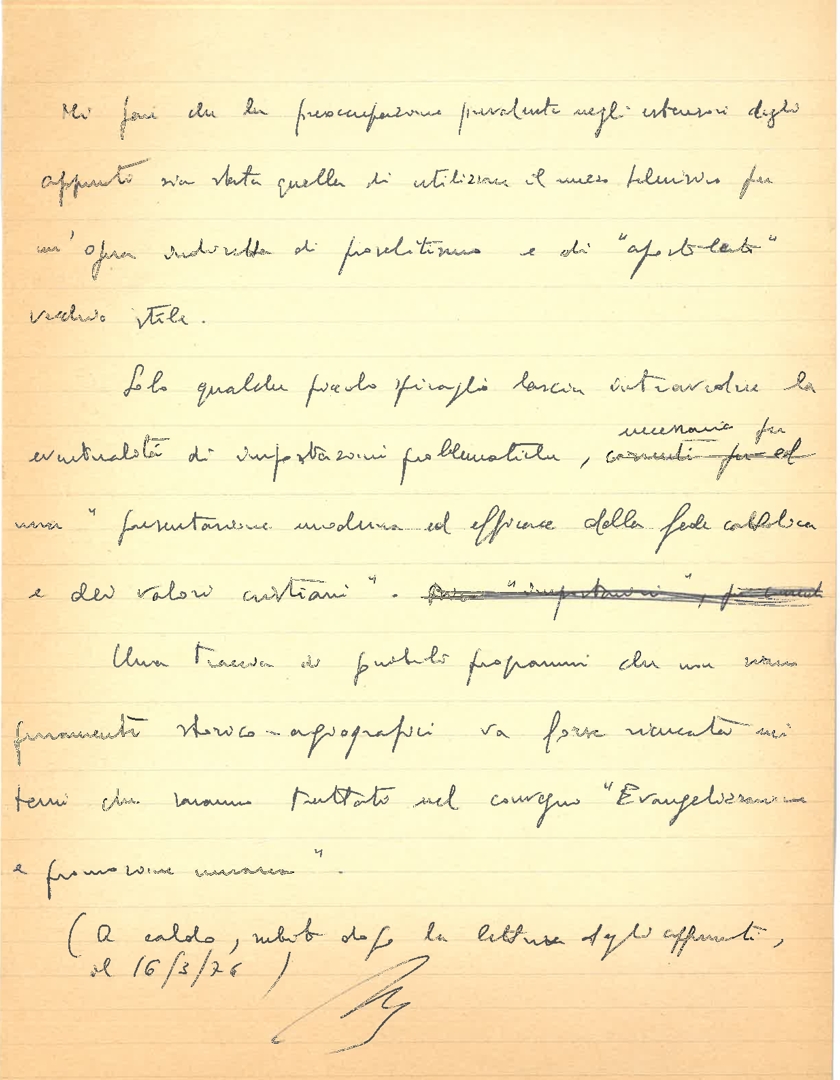 Mi pare che la preoccupazione prevalente negli estensori degli
appunti sia stata quella di utilizzare il mezzo televisivo per
un'opera indiretta di proselitismo e di "apostolato"
vecchio stile.
Solo qualche piccolo spiraglio lascia intravedere la
eventualità di impostazioni problematiche, necessarie per
una "presentazione moderna ed efficace della fede cattolica
e dei valori cristiani".
Una traccia di possibili programmi che non siano
puramente storico-agiografici va forse ricercata nei
temi che saranno trattati nel convegno "Evangelizzazione
e promozione umana".
(A caldo, subito dopo la lettura degli appunti,
il 16/3/76)